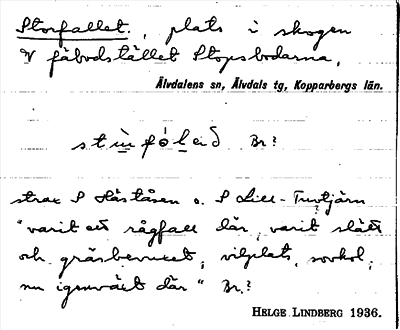 Storfallet., plats i skogen
V fäbodstället Stopsbodarna,
Älvdalens sn, Älvdals tg, Kopparbergs län.
Br?
strax S Håståsen o. S Lill-Turtjärn
"varit ett rågfall där, varit slätt
och gräsbevuxet, vilplats,
nu igenväxt där" Br.?
HELGE LINDBERG 1936.